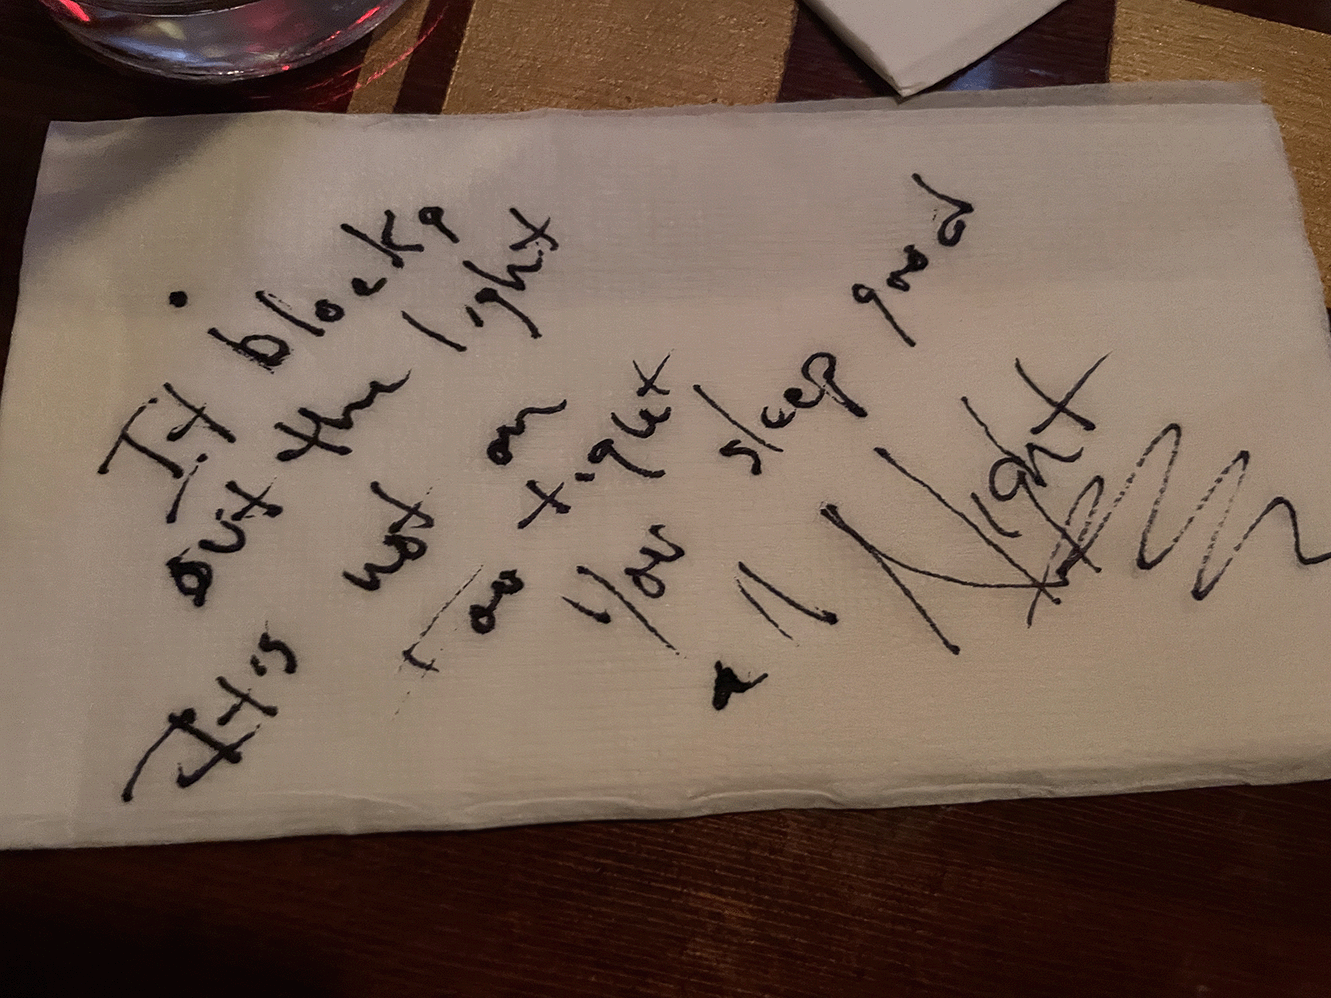 It blocks
out the light
It's not on
too tight
You sleep good
all Night